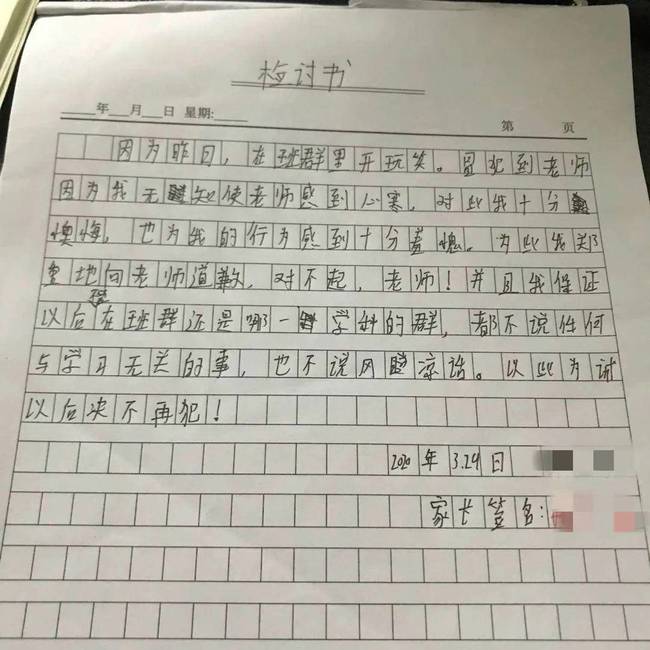 检讨书
年 月 日 星期:
第 页
因为昨日，在班群里开玩笑。冒犯到老师
因为我无知使老师感到心寒，对此我十分
懊悔，也为我的行为感到十分羞愧。为此我郑
重地向老师道歉，对不起，老师！并且我保证
以后在班群还是哪一学科的群，都不说任何
与学习无关的事，也不说风凉话。以此为诫
以后决不再犯！
2020年3.24日
家长签名: